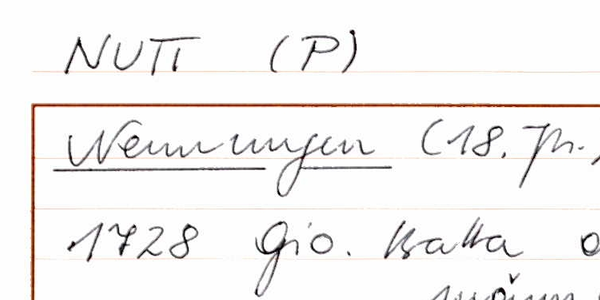 NUTI (P)
Nennungen (18. Jh.)
1728 Gio. Batta